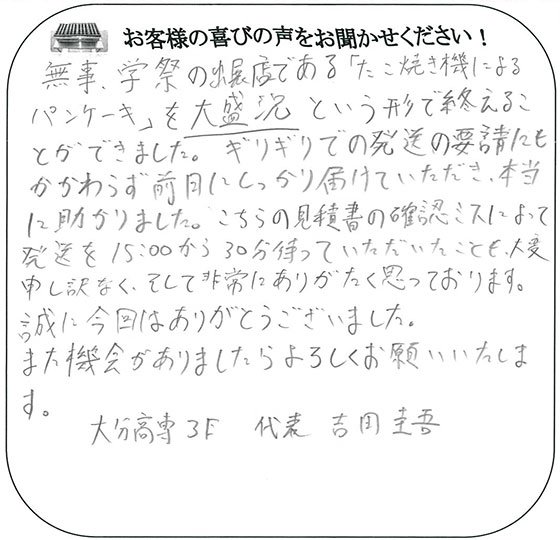 お客様の喜びの声をお聞かせください！
無事、学祭の出展店である「たこ焼き機による
パンケーキ」を大盛況という形で終えるこ
とができました。ギリギリでの発送の要請にも
かかわらず前日にしっかり届けていただき、本当
に助かりました。こちらの見積書の確認ミスによって
発送を15:00から30分待っていただいたことも、大変
申し訳なく、そして非常にありがたく思っております。
誠に今回はありがとうございました。
また機会がありましたらよろしくお願いいたしま
す。
大分高専3F 代表 吉田圭吾